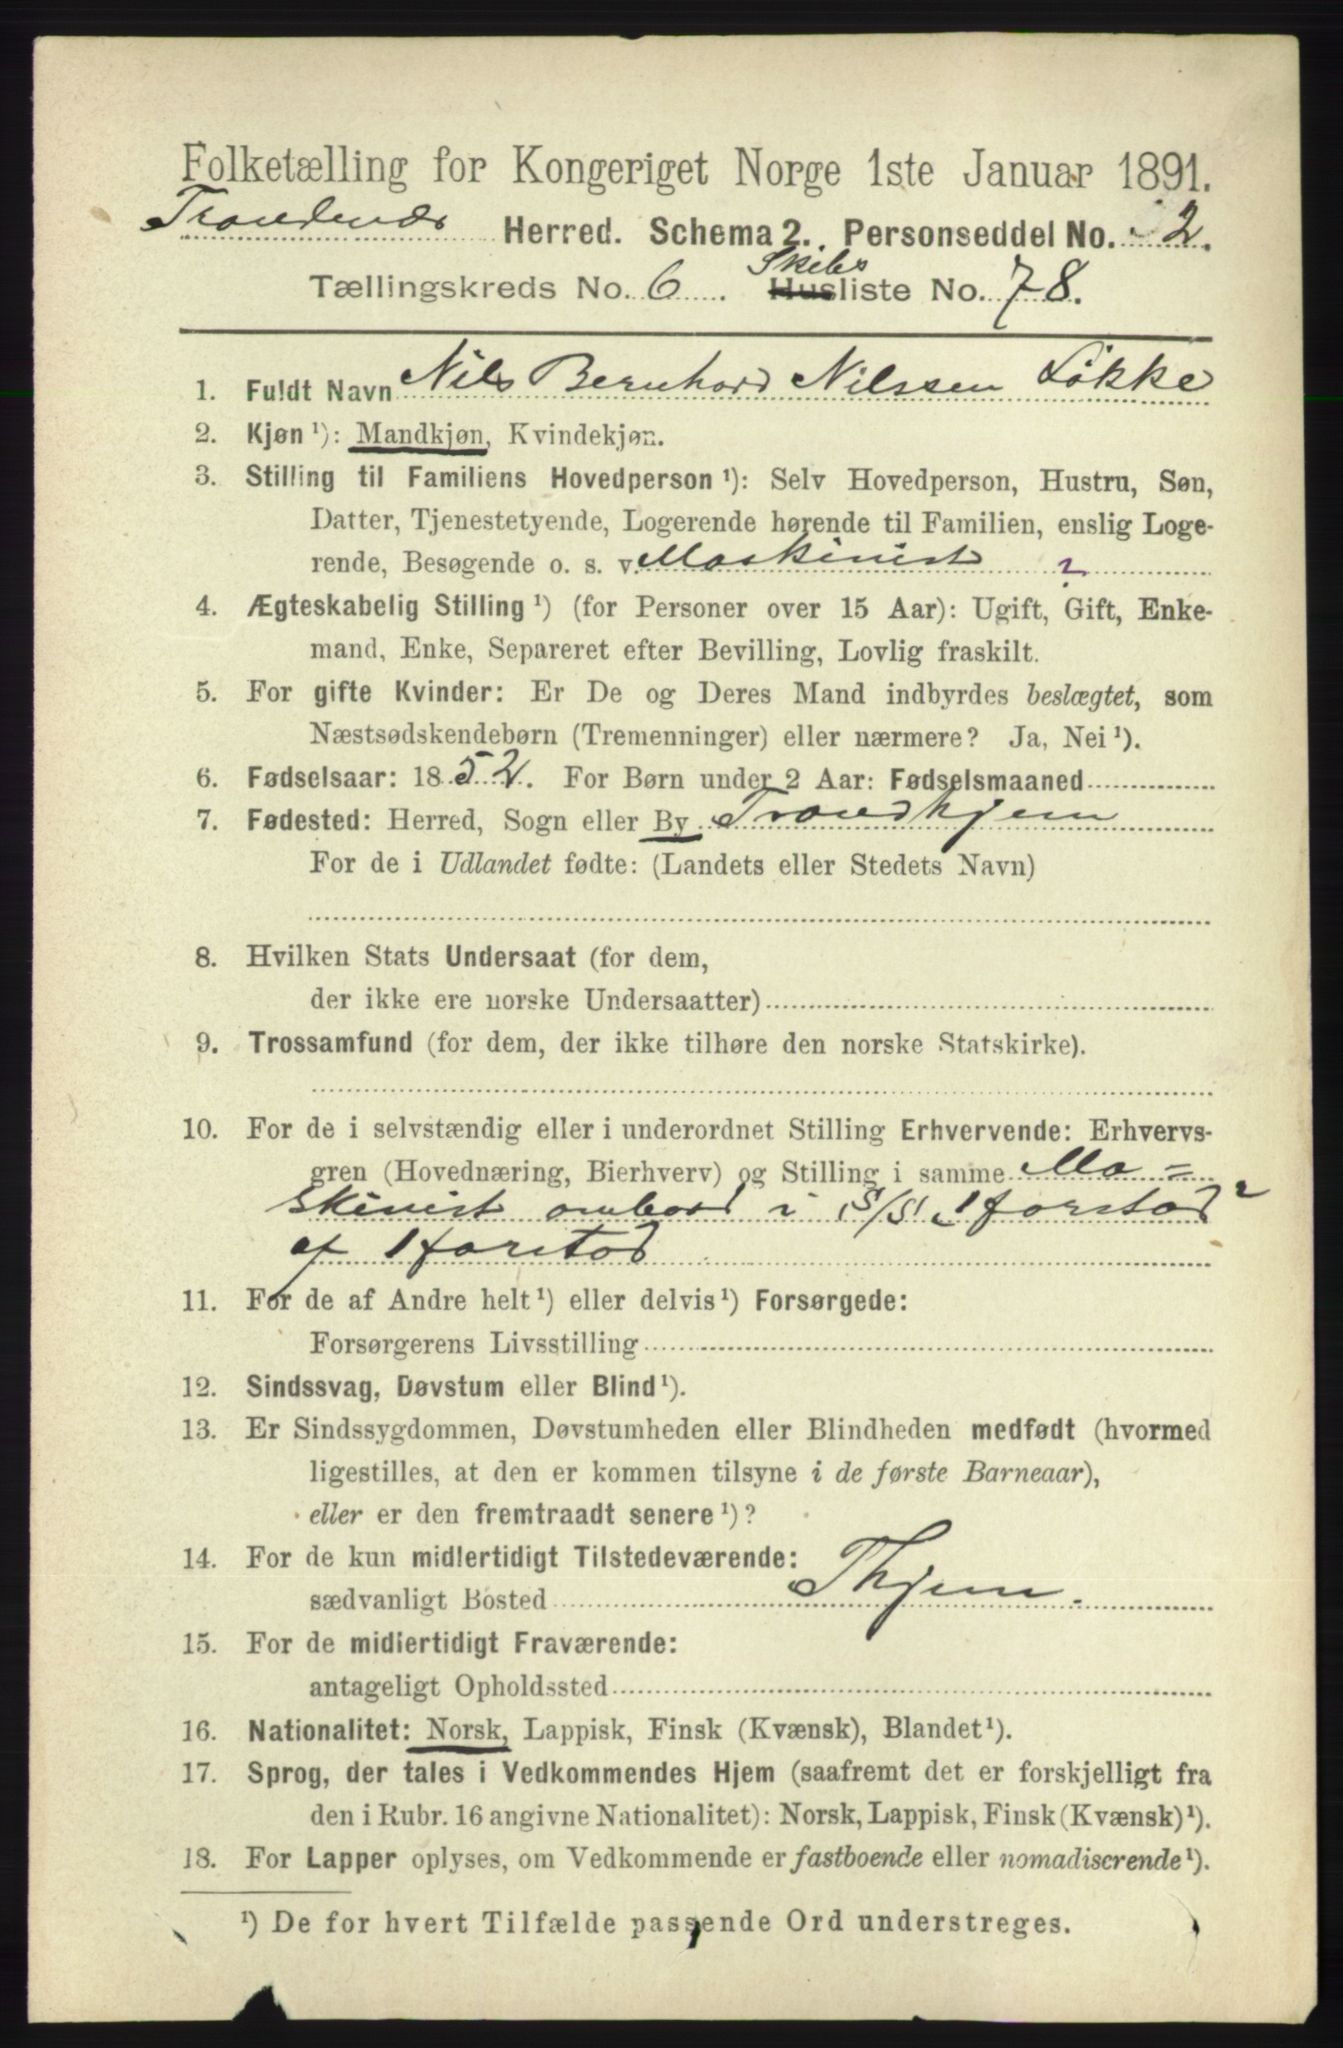 Folketælling for Kongeriget Norge 1ste Januar 1891.
Trondenæs Herred. Schema 2. Personseddel No. 2.
Skibs
Tællingskreds No. 6 Husliste No. 78.
1. Fuldt Navn Nils Bernhard Nilssen Løkke
2. Kjøn ¹): Mandkjøn, Kvindekjøn.
3. Stilling til Familiens Hovedperson ¹): Selv Hovedperson, Hustru, Søn,
Datter, Tjenestetyende, Logerende hørende til Familien, enslig Loge-
rende, Besøgende o. s. v. Maskinist ?
4. Ægteskabelig Stilling ¹) (for Personer over 15 Aar): Ugift, Gift, Enke-
mand, Enke, Separeret efter Bevilling, Lovlig fraskilt.
5. For gifte Kvinder: Er De og Deres Mand indbyrdes beslægtet, som
Næstsødskendebørn (Tremenninger) eller nærmere? Ja, Nei ¹).
6. Fødselsaar: 1852. For Børn under 2 Aar: Fødselsmaaned
7. Fødested: Herred, Sogn eller By Trondhjem
For de i Udlandet fødte: (Landets eller Stedets Navn)
8. Hvilken Stats Undersaat (for dem,
der ikke ere norske Undersaatter)
9. Trossamfund (for dem, der ikke tilhøre den norske Statskirke).
10. For de i selvstændig eller i underordnet Stilling Erhvervende: Erhvervs-
gren (Hovednæring, Bierhverv) og Stilling i samme Ma=
skinist ombord i S/S "
af
11. For de af Andre helt ¹) eller delvis ¹) Forsørgede:
Forsørgerens Livsstilling
12. Sindssvag, Døvstum eller Blind ¹).
13. Er Sindssygdommen, Døvstumheden eller Blindheden medfødt (hvormed
ligestilles, at den er kommen tilsyne i de første Barneaar),
eller er den fremtraadt senere ¹)?
14. For de kun midlertidigt Tilstedeværende:
sædvanligt Bosted Thjem.
15. For de midlertidigt Fraværende:
antageligt Opholdssted
16. Nationalitet: Norsk, Lappisk, Finsk (Kvænsk), Blandet ¹).
17. Sprog, der tales i Vedkommendes Hjem (saafremt det er forskjelligt fra
den i Rubr. 16 angivne Nationalitet): Norsk, Lappisk, Finsk (Kvænsk) ¹).
18. For Lapper oplyses, om Vedkommende er fastboende eller nomadiserende ¹).
¹) De for hvert Tilfælde passende Ord understreges.